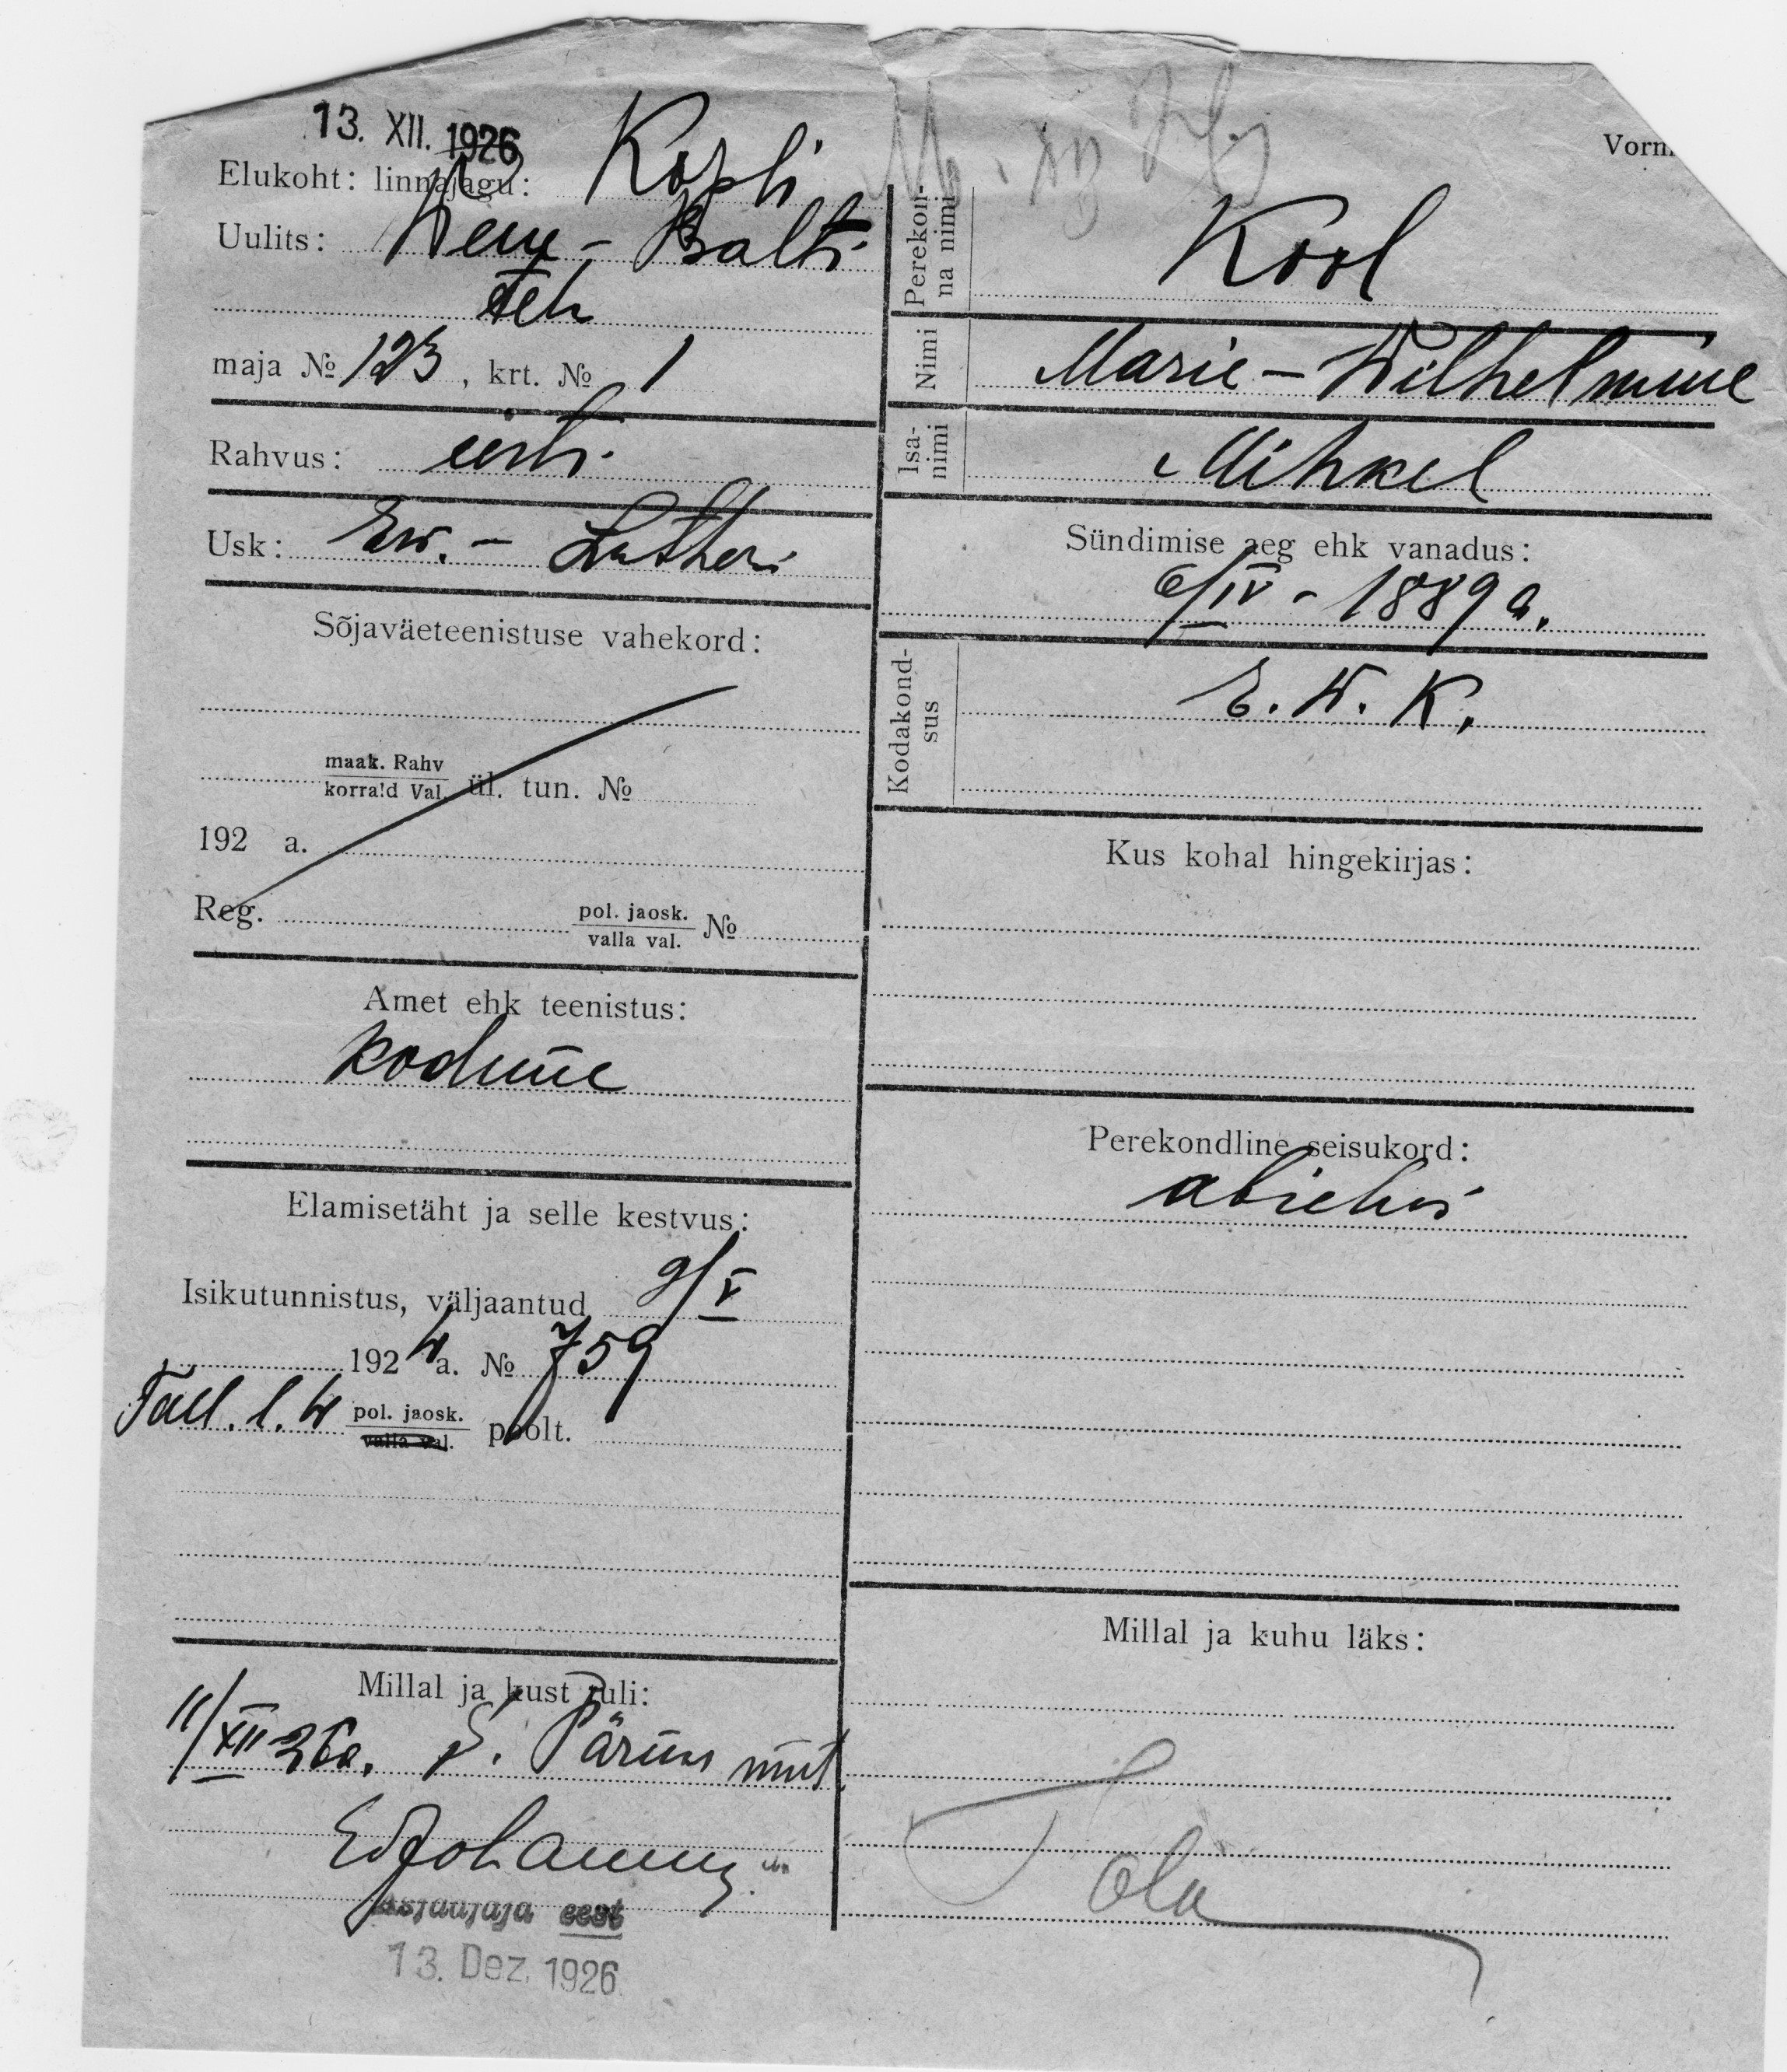 13. XII. 1926
Elukoht: linnajagu: Kopli
Uulits: Wene-Balti
teh
maja № 123, krt. № 1
Rahvus: eesti
Usk: Ew.- Lutheri
Sõjaväeteenistuse vahekord:
maak. Rahv
korrald Val. ül. tun. №
192 a.
Reg. pol. jaosk. №
valla val.
Amet ehk teenistus:
kodune
Elamisetäht ja selle kestvus:
Isikutunnistus, väljaantud 9/V
1924 a. № 759
Tall. l. W pol. jaosk. poolt.
valla val.
Millal ja kust tuli:
11/XII 26a. S. Pärnu mnt.
asjaajaja eest
13. Dez. 1926
Vorm
Perekonna nimi Kool
Nimi Marie-Wilhelmine
Isanimi Mihkel
Sündimise aeg ehk vanadus:
6/IV - 1889 a.
Kodakondsus E. W. K.
Kus kohal hingekirjas:
Perekondline seisukord:
abielus
Millal ja kuhu läks: